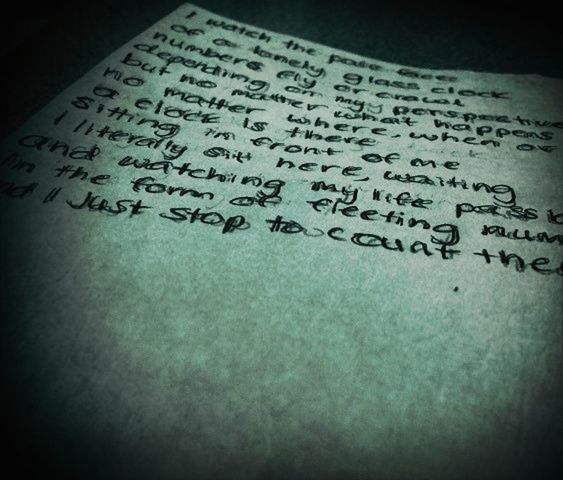 I watch the pale face
of a lonely glass clock
numbers fly or crawl
depending on my perspective
but no matter what happens
no matter where, when or
a clock is there
sitting in front of me
I literally sit here, waiting
and watching my life passi
in the form of fleeting num
nd I just stop to count the